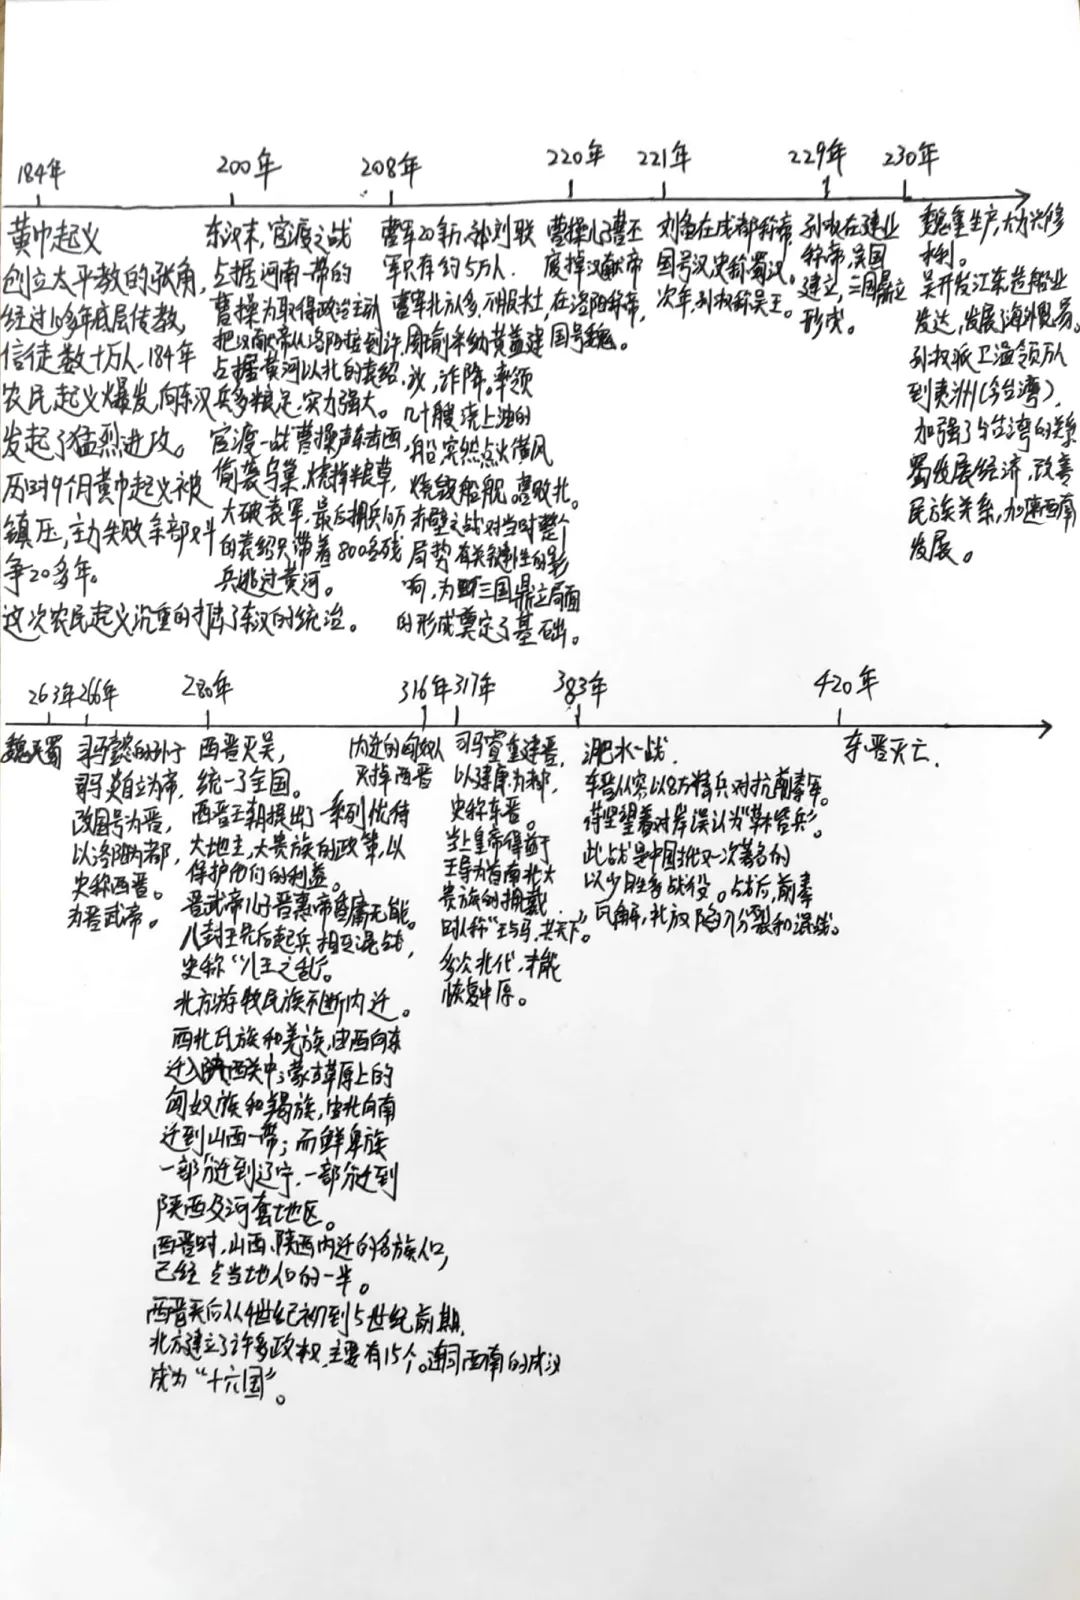 184年
200年
208年
220年
221年
229年
230年
黄巾起义
创立太平教的张角,
经过10多年底层传教,
信徒数十万人,184年
农民起义爆发,向东汉
发起了猛烈进攻。
历时9个月黄巾起义被
镇压,主力失败余部斗
争20多年。
这次农民起义沉重的打击了东汉的统治。
东汉末,官渡之战
占握河南一带的
曹操为取得政治主动
把汉献帝从洛阳接到许,
占握黄河以北的袁绍,
兵多粮足,实力强大。
官渡一战曹操声东击西,
偷袭乌巢,烧掉粮草,
大破袁军,最后拥兵10万
的袁绍只带着800多残
兵逃过黄河。
曹军20多万,孙刘联
军只有约5万人.
曹军北方人多,不服水土,
周瑜采纳黄盖建
议,诈降。率领
几十艘浇上油的
船突然点火借风
烧毁船舰。曹败北。
赤壁之战对当时整个
局势有关键性的影
响,为三国鼎立局面
的形成奠定了基础。
曹操儿子曹丕
废掉汉献帝
在洛阳称帝,
国号魏。
刘备在成都称帝,
国号汉史称蜀汉。
次年,孙权称吴王。
孙权在建业
称帝,吴国
建立,三国鼎立
形成。
魏重生产,大力兴修
水利。
吴开发江东造船业
发达,发展海外贸易。
孙权派卫温领万人
到夷洲(今台湾),
加强了与台湾的关系
蜀发展经济,改善
民族关系,加速西南
发展。
263年
266年
280年
316年
317年
383年
420年
魏灭蜀
司马懿的孙子
司马炎自立为帝,
改国号为晋,
以洛阳为都,
史称西晋。
为晋武帝。
西晋灭吴,
统一了全国。
西晋王朝提出了一系列优待
大地主,大贵族的政策,以
保护他们的利益。
晋武帝儿子晋惠帝昏庸无能。
八封王先后起兵相互混战,
史称“八王之乱”。
北方游牧民族不断内迁。
西北氐族和羌族,由西向东
迁入陕西关中;蒙古草原上的
匈奴族和羯族,由北向南
迁到山西一带;而鲜卑族
一部分迁到辽宁,一部分迁到
陕西及河套地区。
西晋时,山西、陕西内迁的各族人口,
已经占当地人口的一半。
西晋灭后从4世纪初到5世纪前期,
北方建立了许多政权,主要有15个。连同西南的成汉
成为“十六国”。
内迁的匈奴人
灭掉西晋
司马睿重建晋,
以建康为都,
史称东晋。
当上皇帝得益于
王导为首南北大
贵族的拥戴.
时人称“王与马,共天下”。
多次北伐,未能
恢复中原。
淝水一战.
东晋从容以8万精兵对抗前秦军。
苻坚望着对岸误认为“草木皆兵”。
此战是中国古代又一次著名的
以少胜多战役。战后前秦
瓦解,北方陷入分裂和混战。
东晋灭亡.